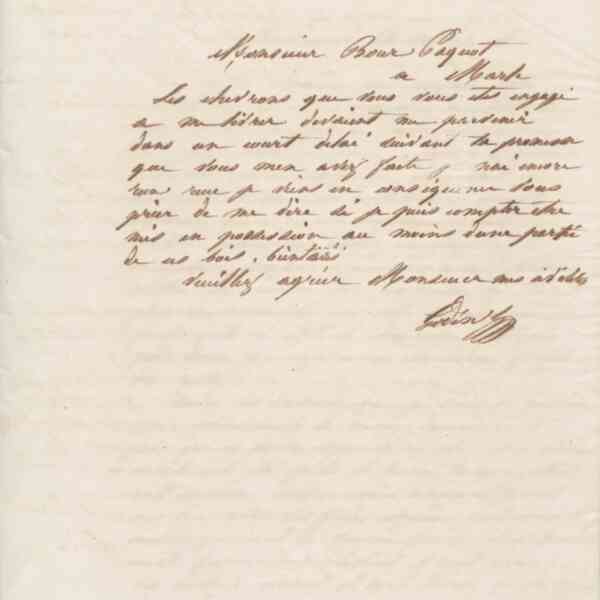 Monsieur Bour Paquot
a Marle
Les chevrons que vous vous etes engagé
a me livrer devaient me parvenir
dans un court délai suivant la promesse
que vous men avez faite, nai encore
rien recu je viens en consequence vous
prier de me dire si je puis compter etre
mis en possession au moins dune partie
de ces bois
Veuillez agréer Monsieur mes
Godin